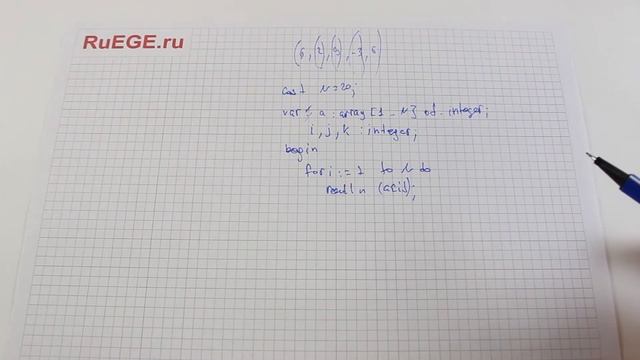 RuEGE.ru
(6, (2), (9), -3), 6)
const N=20;
var a : array [1..N] of integer;
i, j, k : integer;
begin
for i := 1 to N do
readln (a[i]);